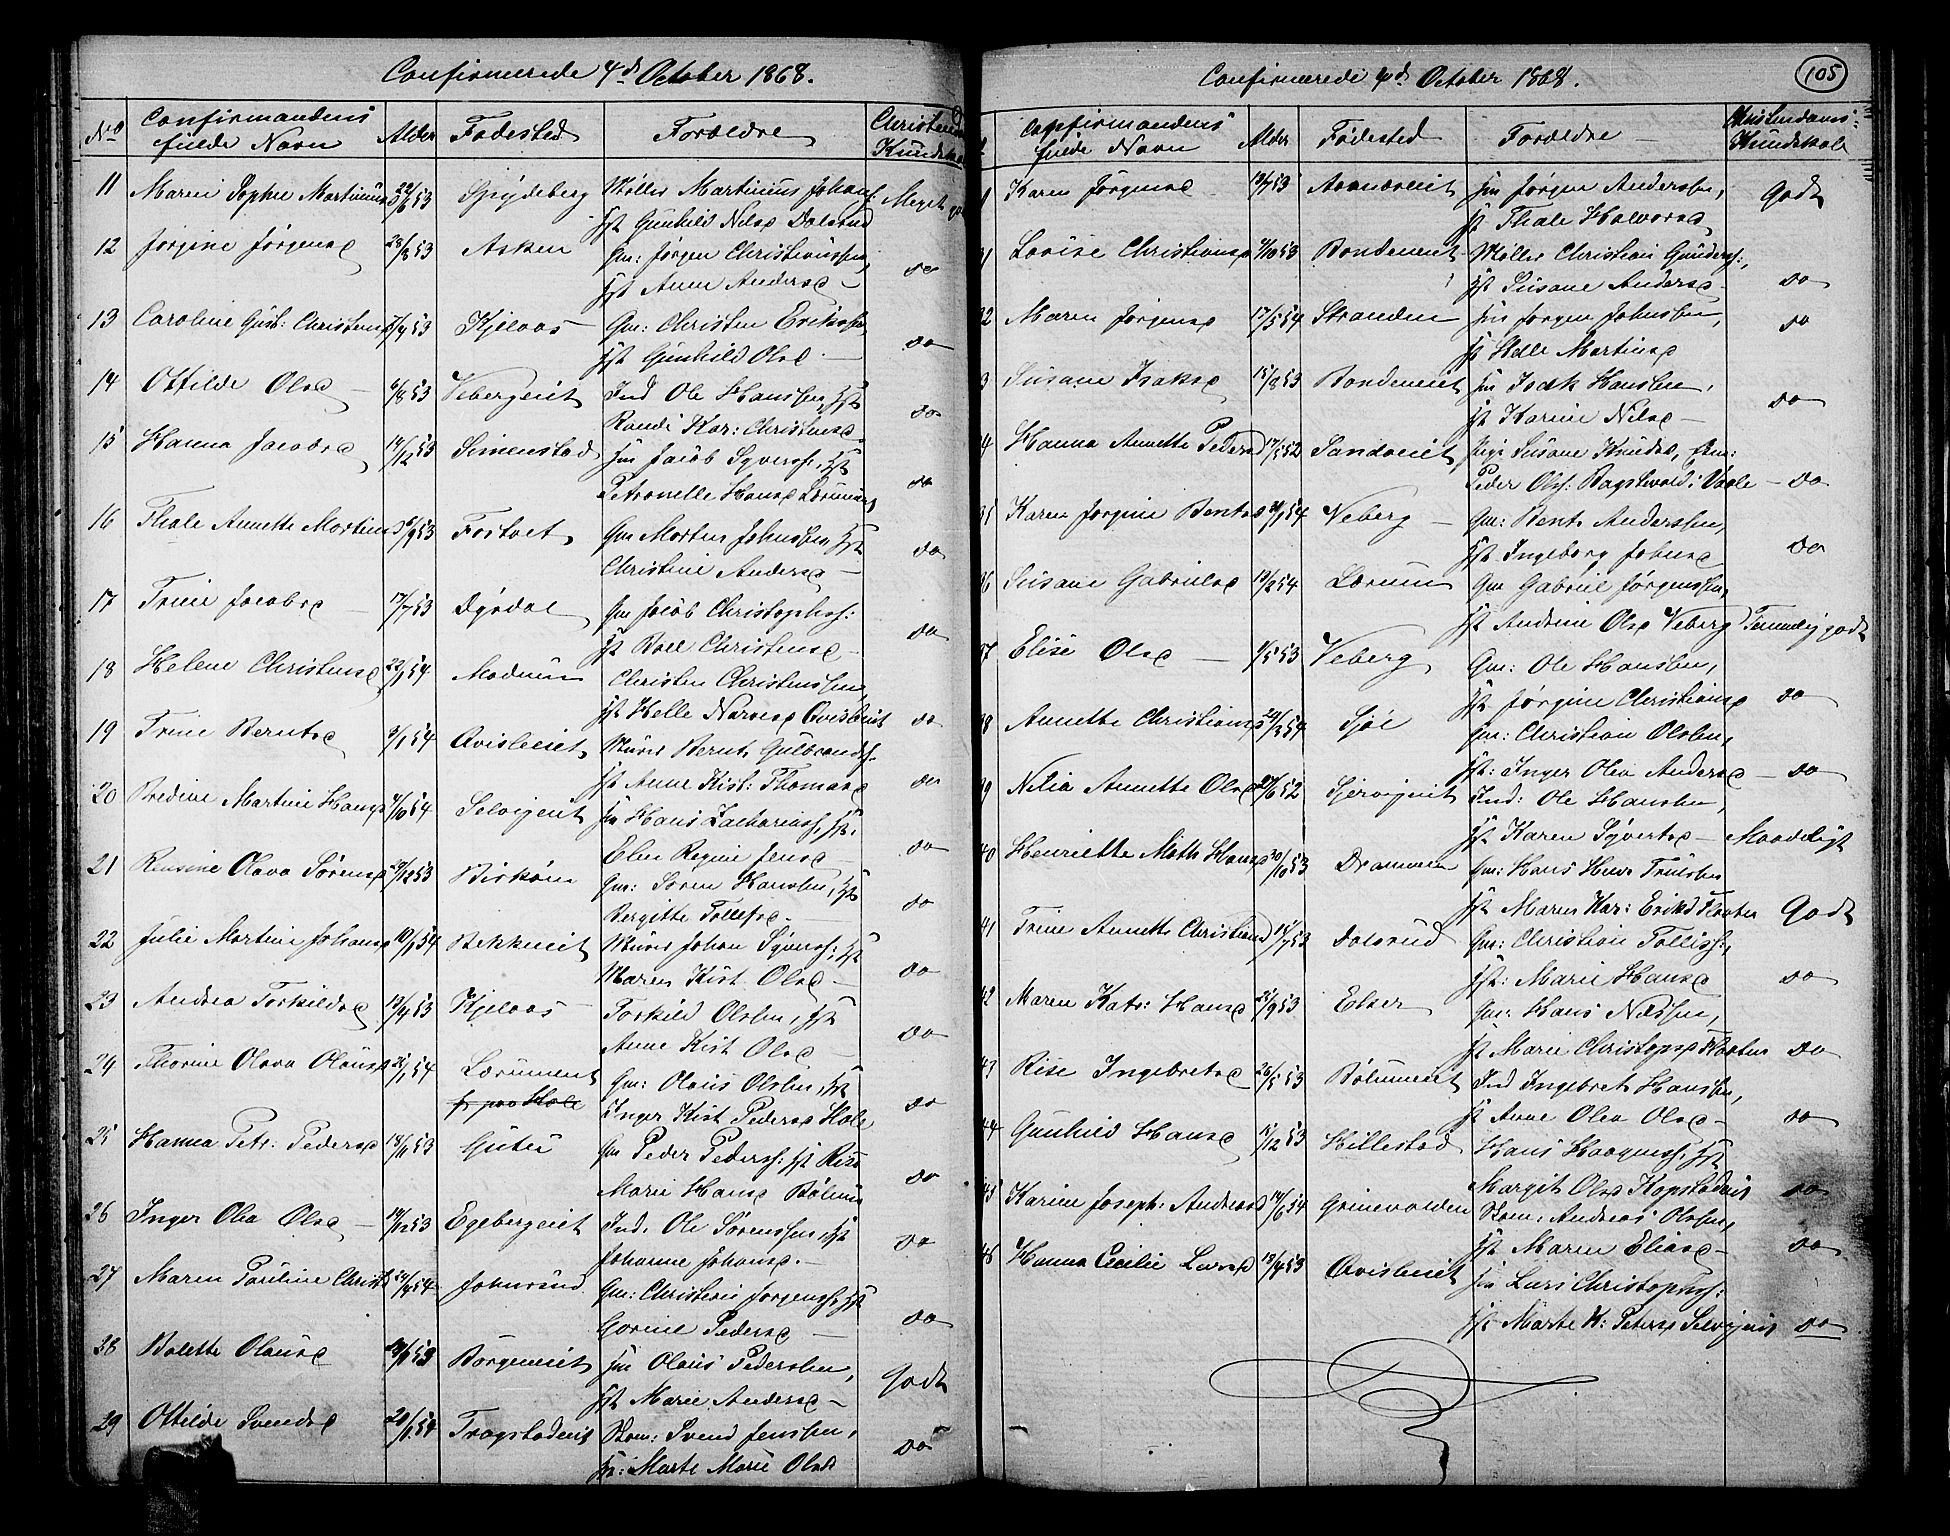 Confirmerede 4de October 1868.
No Confirmandens fulde Navn Alder Fødested Forældre Christendoms Kundskab
11 Maren Sophie Martinius 22/6 53 Spydeberg Møller Martinius Johans: Meget godt
Gunhild Nilsd Dalsrud
12 Jørgine Jørgensd 28/8 53 Asken Gm: Jørgen Christianssen, do
Anne Andersd
13 Caroline Gust: Christens 7/9 53 Kjelaas Gm: Christen Erikssen do
Gunhild Olsd
14 Ottilde Olsd 6/8 53 Vebergeiet Ind Ole Hanssen,
Randi Kar: Christensd do
15 Hanna Jacobsd 14/12 53 Simenstad Jacob Syverss:
Petronelle Hansd Lørum do
16 Thale Annette Mortensd 6/9 53 Fostvet Gm Morten Johnssen
Christine Andersd do
17 Trine Jacobsd 17/7 53 Dyrdal Gm Jacob Christophss:
Boel Christensd do
18 Helene Christensd 22/1 54 Modum Christen Christenssen
Helle Narvesd Qvisleiet do
19 Trine Berntsd 9/1 54 Qvisleiet Bernt Gulbrands:
Anne Kist: Thomasd do
20 Bredine Martine Hansd 4/10 54 Selvigeiet Hans Zacharenss,
Elen Regine Jensd do
21 Rensine Olava Sørensd 29/12 53 Birkøen Gm: Søren Hanssen,
Bergitte Tollefsd do
22 Julie Martine Johansd 10/1 54 Bekkeeiet Johan Syverss:
Maren Kist. Olsd do
23 Andrea Torkildsd 19/4 53 Kjelaas Torkild Olssen,
Anne Kist Olsd do
24 Thorine Olava Olausd 21/1 54 Lørumeiet Gm: Olaus Olssen,
Inger Kist Pedersd Hole do
25 Hanna Petr: Pedersd 18/11 53 Gutu Gm Peder Pederss: Rise
Marie Hansd Bølum do
26 Inger Olea Olsd 14/12 53 Egebergeiet Ind. Ole Sørenssen,
Johanne Johansd. do
27 Maren Pauline Christ 24/4 54 Johnsrud Gm: Christian Jørgenss,
Gorine Pedersd do
28 Bolette Olausd 29/1 53 Borgeneiet Olaus Pederssen,
Marie Andersd Godt
29 Ottilde Svendsd 20/1 54 Trogstadeiet Svend Jenssen,
Marte Marie Olsd do
105
Confirmerede 4de October 1868.
Confirmandens fulde Navn Alder Fødested Forældre Christendoms: Kundskab
Karen Jørgensd 13/7 53 Jørgen Anderssen,
Thale Halvorsd Godt
1 Lovise Christiansd 4/10 53 Bondeneiet Møller Christian Gunders:,
Susane Andersd do
32 Maren Jørgensd 17/5 54 Stranden Jørgen Johnssen,
Helle Martinsd do
3 Susane Isaksd 15/8 53 Bondeneiet Isak Hanssen,
Karine Nilsd do
4 Hanna Annette Pedersd 17/5 52 Sandveiet, Pige Susane Knudsd,
Peder Ols: Bagstevold i Vaale do
35 Karen Jørgine Bentsd 21/1 54 Veberg Gm: Bent Anderssen,
Ingeborg Johnsd do
36 Susane Gabrielsd 13/2 54 Lørum Gm Gabriel Jørgenssen,
Andrine Olsd Veberg Temmelig godt
37 Elise Olsd 9/5 53 Veberg Gm: Ole Hanssen,
Jørgine Christiansd do
38 Annette Christiansd 24/3 54 Sjøe Gm: Christian Olssen,
Inger Olea Andersd do
39 Nilia Annette Olsd 27/6 52 Sjervigeiet Ind: Ole Hanssen,
Karen Syvertsd Maadeligt
40 Henriette Math Hansd 20/10 53 Drammen Gm: Hans Henr Trulssen
Maren Kar: Eriksd Flaaten Godt
41 Trine Annette Christiansd 14/7 53 Dalsrud Gm: Christian Tolliss:,
Marie Hansd do
42 Maren Kats: Hansd 21/9 53 Ebser Gm: Hans Nilssen,
Marie Christophsd Flaaten do
43 Rise Ingebretsd 26/5 53 Bølumeiet Ind Ingebret Hanssen,
Anne Olea Olsd do
44 Gunhild Hansd 11/12 53 Hillestad Hans Haagenss,
Margit Olsd Kopstadeiet do
45 Karine Joseph: Andreasd 14/6 54 Grinevolden Andreas Olssen,
Maren Eliasd do
46 Hanna Cecilie Larsd 19/4 53 Qvisleiet Lars Christophss:
Marte K: Petersd Selvigeiet do